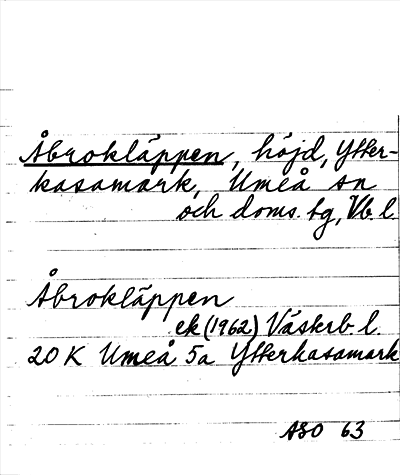 Åbrokläppen, höjd, Ytter-
kasamark, Umeå sn
och doms. tg, Vb. l.
Åbrokläppen
ek (1962) Västerb. l.
20 K Umeå 5a Ytterkasamark
ASO 63